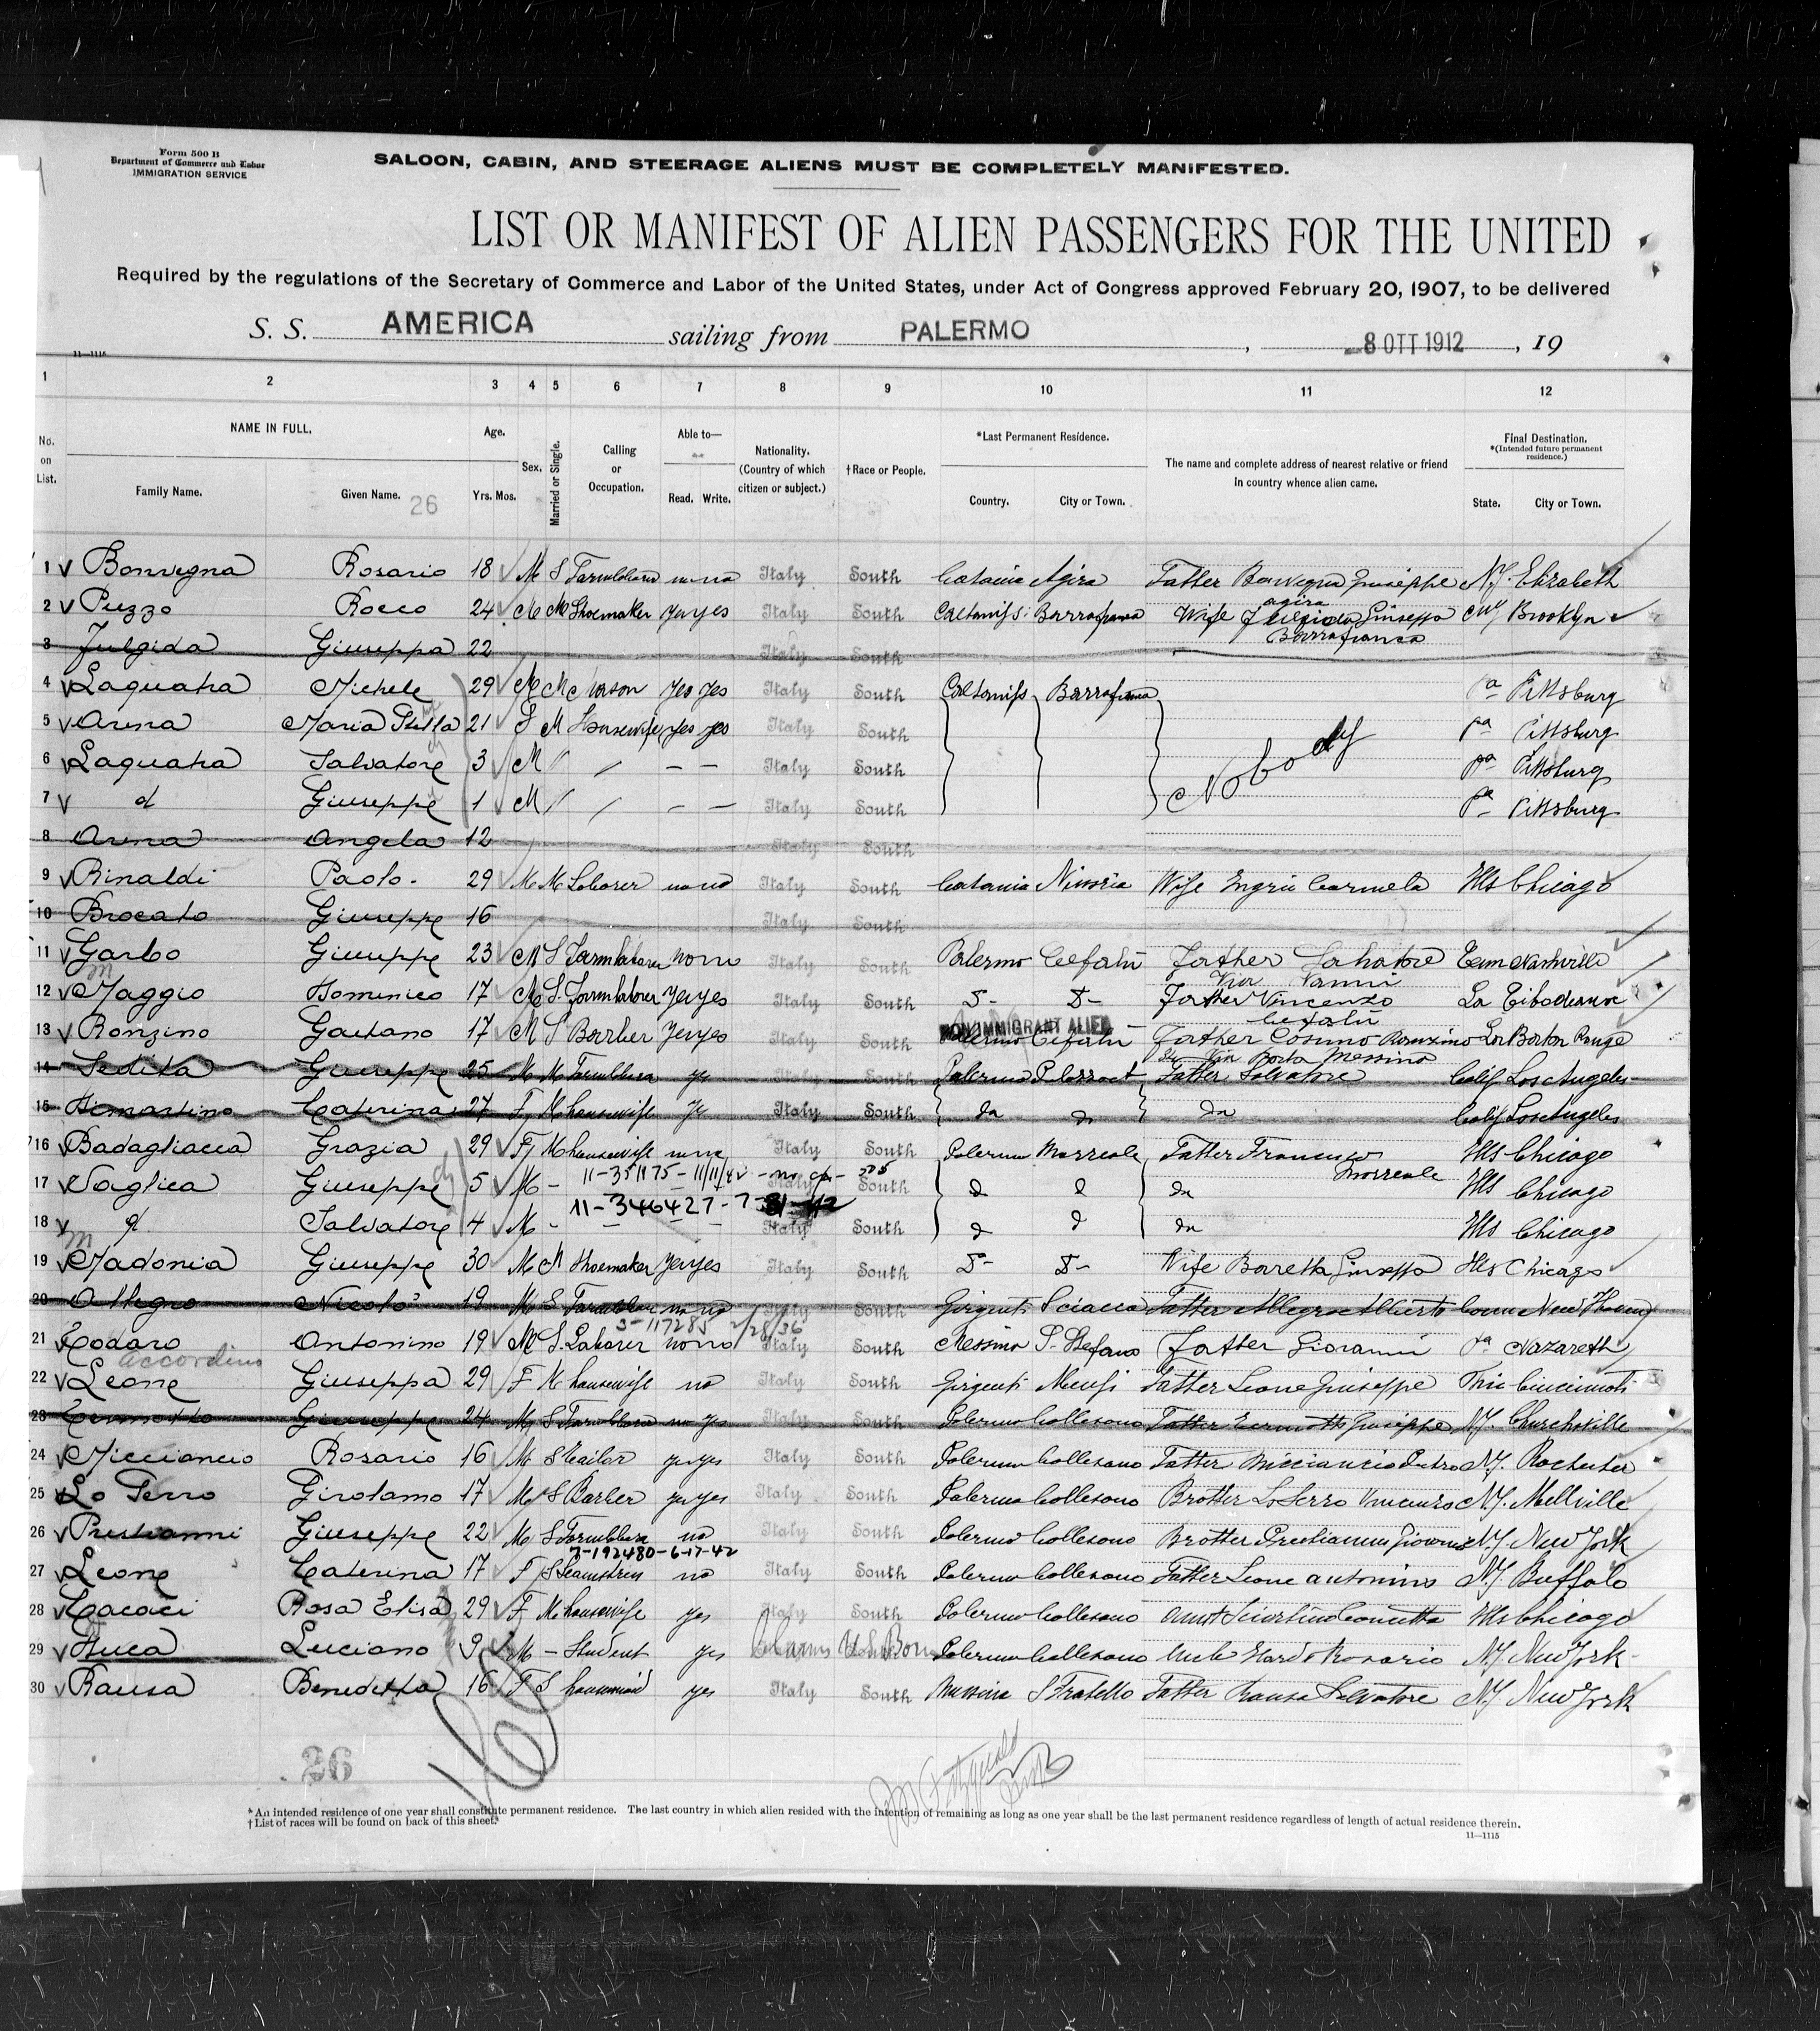 Form 500 B
Department of Commerce and Labor
IMMIGRATION SERVICE
SALOON, CABIN, AND STEERAGE ALIENS MUST BE COMPLETELY MANIFESTED.
LIST OR MANIFEST OF ALIEN PASSENGERS FOR THE UNITED
Required by the regulations of the Secretary of Commerce and Labor of the United States, under Act of Congress approved February 20, 1907, to be delivered
S. S. AMERICA sailing from PALERMO, 8 OTT 1912, 19
11—1115
1 2 3 4 5 6 7 8 9 10 11 12
No. on List.
NAME IN FULL.
Family Name.
Given Name.
26
Age.
Yrs. Mos.
Sex.
Married or Single.
Calling or Occupation.
Able to—
Read. Write.
Nationality. (Country of which citizen or subject.)
†Race or People.
*Last Permanent Residence.
Country. City or Town.
The name and complete address of nearest relative or friend in country whence alien came.
Final Destination.
*(Intended future permanent residence.)
State. City or Town.
1 Bonvegna Rosario 18 M S Italy South Catania Agira Father Giuseppe N.J. Elizabeth
agira
2 Puzzo Rocco 24 M M Shoemaker yes yes Italy South Barrafranca Wife Fulgida Giuseppa Brooklyn
Barrafranca
3 Fulgida Giuseppa 22 Italy South
4 Laquatra Michele 29 M M Mason yes yes Italy South Barrafranca Pa Pittsburg
5 Arena Maria Stella 21 F M Housewife yes yes Italy South Pa Pittsburg
6 Laquatra Salvatore 3 M Italy South Nobody Pa Pittsburg
7 d Giuseppe 1 M Italy South Pa Pittsburg
8 Arena Angela 12 Italy South
9 Rinaldi Paolo 29 M M Laborer no no Italy South Catania Wife Carmela Ills Chicago
10 Brocato Giuseppe 16 Italy South
11 Garbo Giuseppe 23 M S Farmlaborer no no Italy South Palermo Cefalù Father Salvatore Tenn Nashville
12 Maggio Domenico 17 M S Farmlaborer yes yes Italy South Father Vincenzo La
Cefalù
NON IMMIGRANT ALIEN
13 Ronzino Gaetano 17 M S Barber yes yes Italy South Palermo Cefalù Father Cosimo Ronzino La Baton Rouge
Via Porta Messina
14 Sedita Giuseppe 25 M M yes Italy South Palermo Father Salvatore Calif Los Angeles
15 Dimartino Caterina 27 F M housewife Italy South da da da Calif Los Angeles
16 Badagliacca Grazia 29 F M housewife Italy South Palermo Morreale Father Francesco Ills Chicago
11-351175-11/11/42
Morreale
17 Vaglica Giuseppe 5 M South d d da Ills Chicago
11-346427-7-31-42
18 d Salvatore 4 M Italy South d d da Ills Chicago
19 Madonia Giuseppe 30 M M Shoemaker yes yes Italy South Wife Barretta Giuseppa Ills Chicago
20 Allegro Nicolo' 19 M S no no Italy South Girgenti Sciacca Father Allegro Alberto Conn New Haven
3-117285 2/28/36
21 Todaro Antonino 19 M S Laborer no no Italy South Messina S. Stefano Father Giovanni Pa Nazareth
Accordino
22 Leone Giuseppa 29 F M housewife no Italy South Girgenti Menfi Father Leone Giuseppe
23 Giuseppe 24 M S no yes Italy South Palermo Collesano Father Giuseppe N.Y. Churchville
24 Micciancio Rosario 16 M S Tailor yes yes Italy South Palermo Collesano Father Miccianció Pietro N.Y. Rochester
25 Lo Serro Girolamo 17 M S Barber yes yes Italy South Palermo Collesano Brother Lo Serro Vincenzo N.Y. Mellville
26 Prestianni Giuseppe 22 M S no Italy South Palermo Collesano Brother Prestianni Giovanni N.Y. New York
7-192480-6-17-42
27 Leone Caterina 17 F S Seamstress no Italy South Palermo Collesano Father Leone Antonino N.Y. Buffalo
28 Cacaci Rosa Elisa 29 F M housewife yes Italy South Palermo Collesano Aunt Ills Chicago
29 Luciano 9 M — Student yes Claims U.S. Born Palermo Collesano Uncle Rosario N.Y. New York
30 Rausa Benedetta 16 F S housemaid yes Italy South Messina S Fratello Father Rausa Salvatore N.Y. New York
26
*An intended residence of one year shall constitute permanent residence. The last country in which alien resided with the intention of remaining as long as one year shall be the last permanent residence regardless of length of actual residence therein.
†List of races will be found on back of this sheet.
11—1115